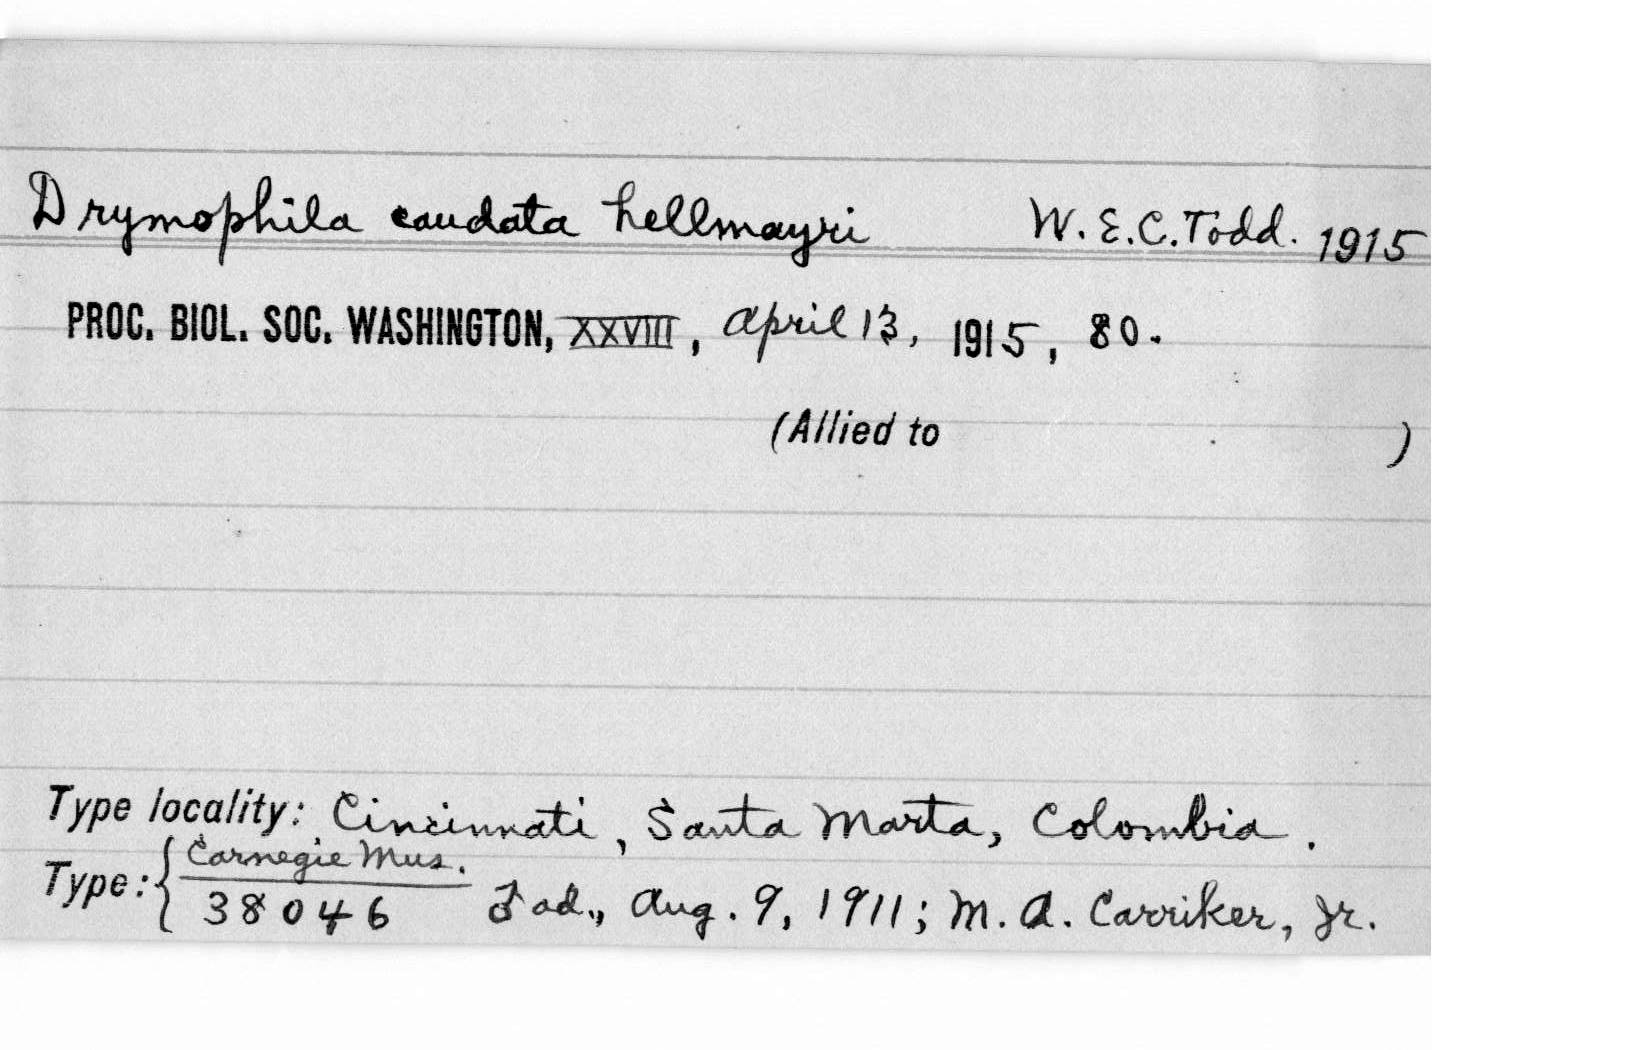 Drymophila caudata hellmayri W. E. C. Todd. 1915
PROC. BIOL. SOC. WASHINGTON, XXVIII, April 13, 1915, 80.
(Allied to )
Type locality: Cincinnati, Santa Marta, Colombia.
Type: { Carnegie Mus.
38046 ♂ ad., Aug. 9, 1911; M. A. Carriker, Jr.